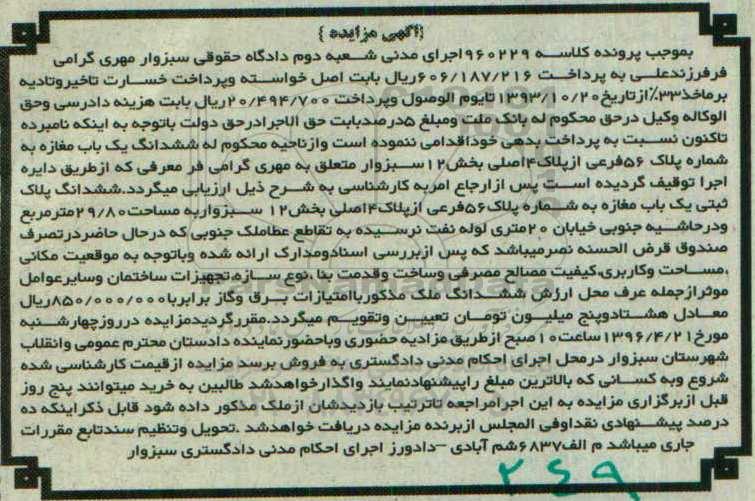 {آگهی مزایده}
بموجب پرونده کلاسه ۹۶۰۲۲۹اجرای مدنی شعبه دوم دادگاه حقوقی سبزوار مهری گرامی
فرفرزندعلی به پرداخت ۶۰۶/۱۸۷/۲۱۶ریال بابت اصل خواسته وپرداخت خسارت تاخیروتادیه
برماخذ۳۳٪ازتاریخ۱۳۹۳/۱۰/۲۰تایوم الوصول وپرداخت ۲۰/۴۹۴/۷۰۰ریال بابت هزینه دادرسی وحق
الوکاله وکیل درحق محکوم له بانک ملت ومبلغ ۵درصدبابت حق الاجرادرحق دولت باتوجه به اینکه نامبرده
تاکنون نسبت به پرداخت بدهی خوداقدامی ننموده است وازناحیه محکوم له ششدانگ یک باب مغازه به
شماره پلاک ۵۶فرعی ازپلاک۴اصلی بخش۱۲سبزوار متعلق به مهری گرامی فر معرفی که ازطریق دایره
اجرا توقیف گردیده است پس ازارجاع امربه کارشناسی به شرح ذیل ارزیابی میگردد.ششدانگ پلاک
ثبتی یک باب مغازه به شماره پلاک۵۶فرعی ازپلاک۴اصلی بخش۱۲ سبزواربه مساحت۲۹/۸۰مترمربع
ودرحاشیه جنوبی خیابان ۲۰متری لوله نفت نرسیده به تقاطع عطاملک جنوبی که درحال حاضردرتصرف
صندوق قرض الحسنه نصرمیباشد که پس ازبررسی اسنادومدارک ارائه شده وباتوجه به موقعیت مکانی
،مساحت وکاربری،کیفیت مصالح مصرفی وساخت وقدمت بنا ،نوع سازه،تجهیزات ساختمان وسایرعوامل
موثرازجمله عرف محل ارزش ششدانگ ملک مذکورباامتیازات برق وگاز برابربا۸۵۰/۰۰۰/۰۰۰ریال
معادل هشتادوپنج میلیون تومان تعیین وتقویم میگردد.مقررگردیدمزایده درروزچهارشنبه
مورخ۱۳۹۶/۴/۲۱ساعت۱۰صبح ازطریق مزادیه حضوری وباحضورنماینده دادستان محترم عمومی وانقلاب
شهرستان سبزوار درمحل اجرای احکام مدنی دادگستری به فروش برسد مزایده ازقیمت کارشناسی شده
شروع وبه کسانی که بالاترین مبلغ راپیشنهادنمایند واگذارخواهدشد طالبین به خرید میتوانند پنج روز
قبل ازبرگزاری مزایده به این اجرامراجعه تاترتیب بازدیدشان ازملک مذکور داده شود قابل ذکراینکه ده
درصد پیشنهادی نقداوفی المجلس ازبرنده مزایده دریافت خواهدشد .تحویل وتنظیم سندتابع مقررات
جاری میباشد م الف۶۸۳۷شم آبادی –دادورز اجرای احکام مدنی دادگستری سبزوار
۲۶۹